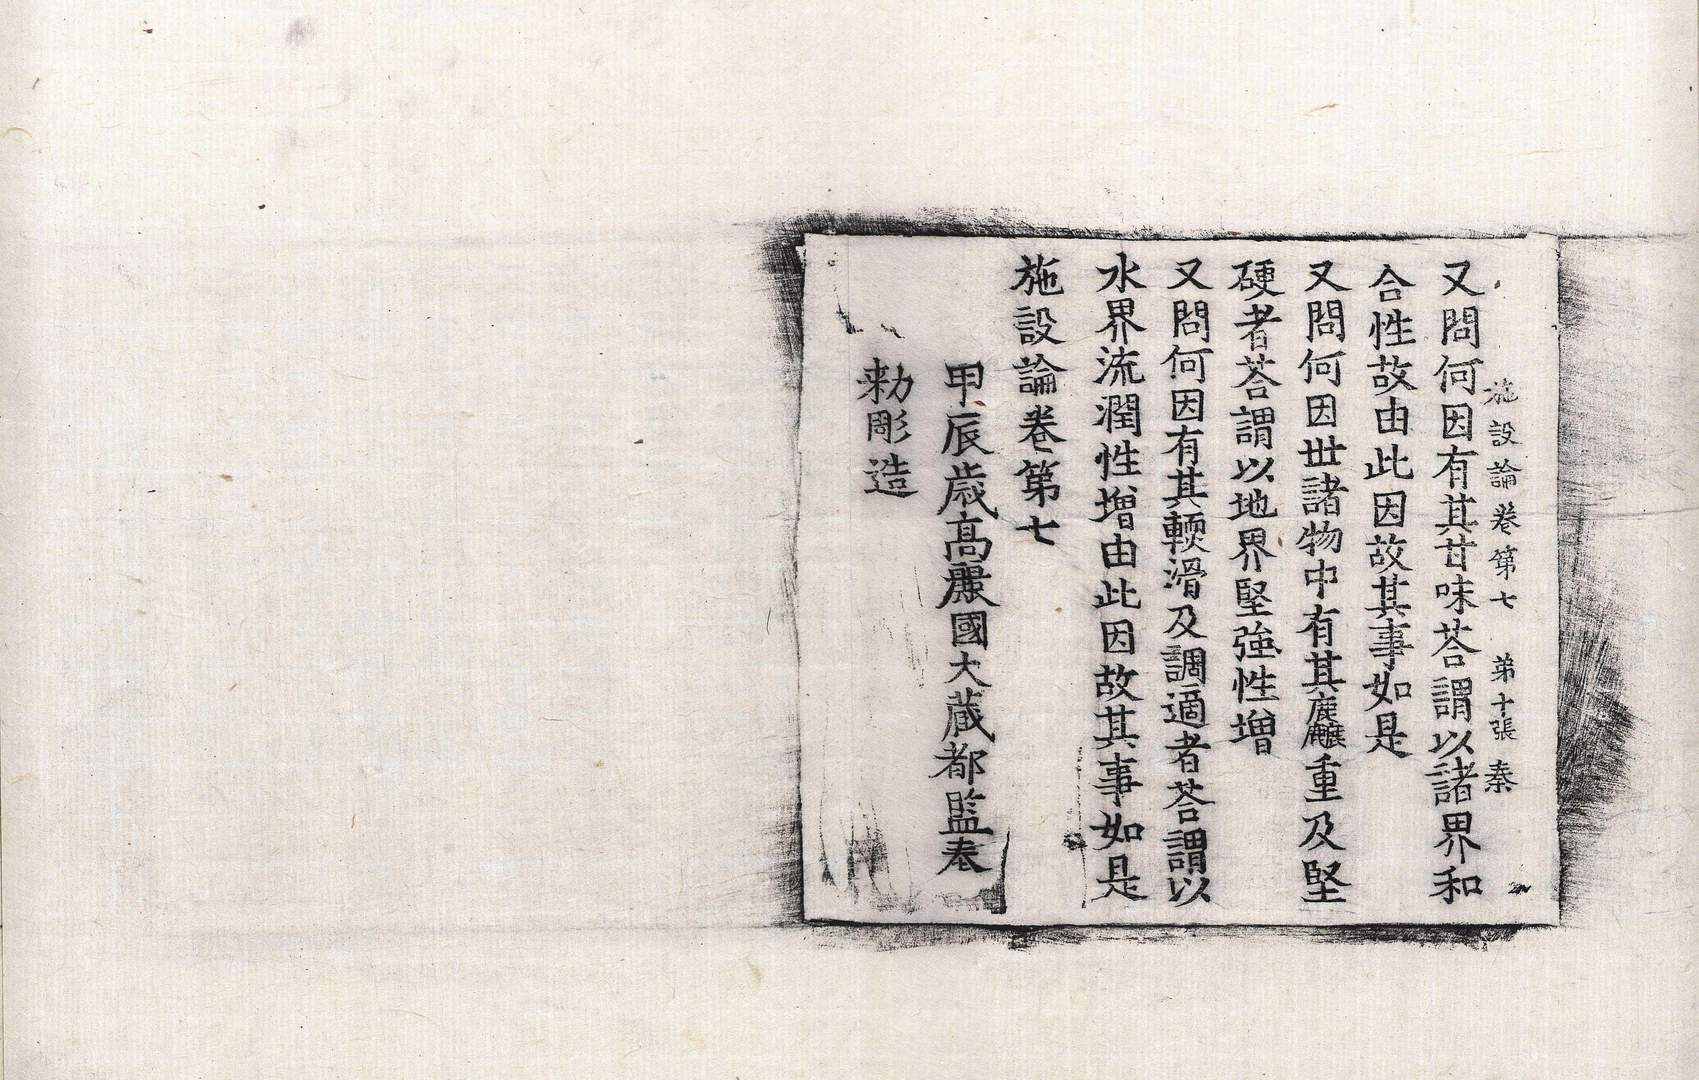 施設論卷第七 第十張 秦
又問何因有其甘味荅謂以諸界和
合性故由此因故其事如是
又問何因世諸物中有其麤重及堅
硬者荅謂以地界堅強性增
又問何因有其輭滑及調適者荅謂以
水界流潤性增由此因故其事如是
施設論卷第七
甲辰歲高麗國大藏都監奉
勅彫造